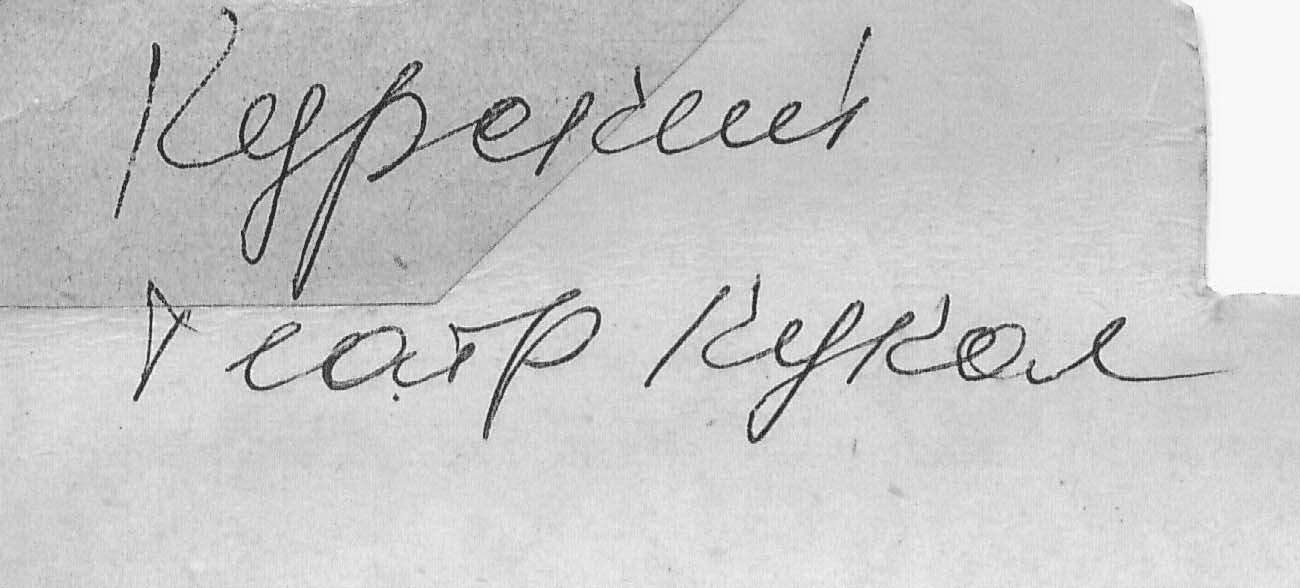 Курский
театр кукол